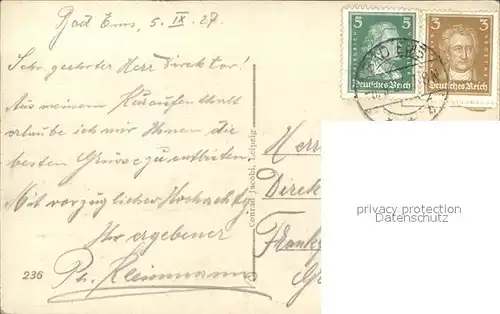 Bad Ems, 5. IX. 27.
Sehr geehrter Herr Direktor!
Aus meinem Kuraufenthalt
erlaube ich mir Ihnen die
besten Grüsse zu entbieten.
Mit vorzüglicher Hochachtg
Ihr ergebener
Ph.
236
Conrad Jacobi, Leipzig
5 5
Deutsches Reich
3 3
Deutsches Reich
BAD EMS
Herr
Direk
Frankf
privacy protection
Datenschutz